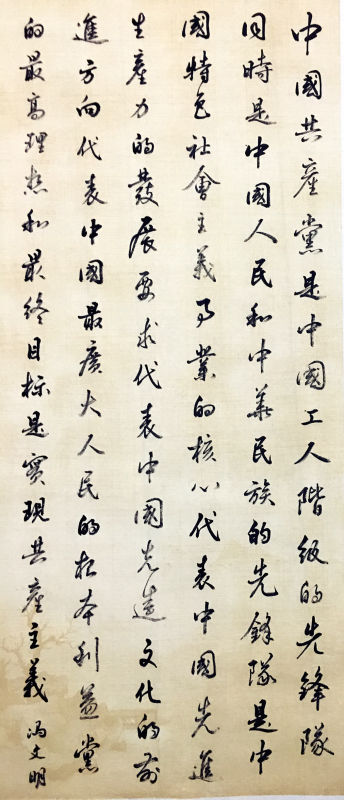 中國共產黨是中國工人階級的先鋒隊
同時是中國人民和中華民族的先鋒隊是中
國特色社會主義事業的核心代表中國先進
生產力的發展要求代表中國先進文化的前
進方向代表中國最廣大人民的根本利益黨
的最高理想和最終目标是實現共產主義
冯文明